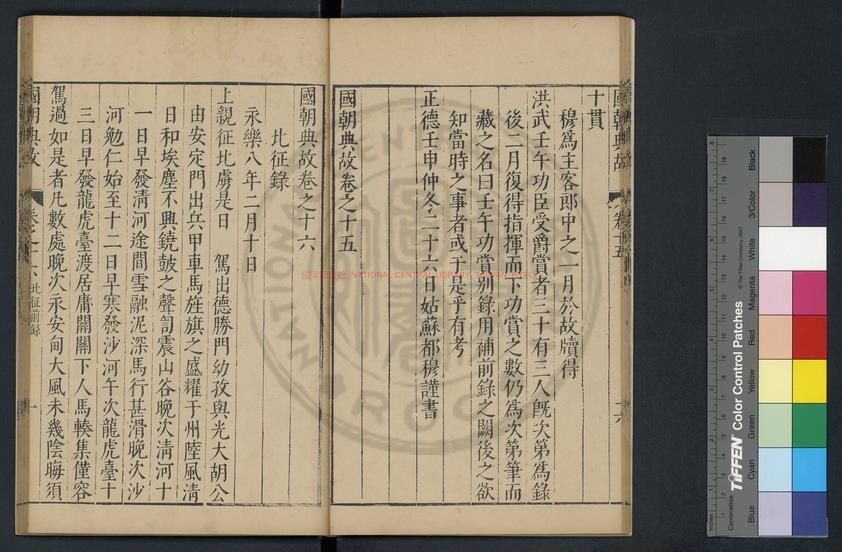 十貫
穆爲主客郎中之一月於故牘得
洪武壬午功臣受爵賞者三十有三人旣次第爲錄
後二月復得指揮而下功賞之數仍爲次第筆而
藏之名曰壬午功賞別錄用補前錄之闕後之欲
知當時之事者或于是乎有考
正德壬申仲冬二十六日姑蘇都穆謹書
國朝典故卷之十五
國朝典故卷之十六
北征錄
永樂八年二月十日
上親征北虜是日 駕出德勝門幼孜與光大胡公
由安定門出兵甲車馬旌旗之盛耀于州陸風清
日和埃塵不興鐃鼓之聲訇震山谷晚次清河十
一日早發清河途間雪融泥深馬行甚滑晚次沙
河勉仁始至十二日早寒發沙河午次龍虎臺十
三日早發龍虎臺渡居庸關關下人馬輳集僅容
駕過如是者凡數處晚次永安甸大風未幾陰晦須
國朝典故 卷之十六 北征前錄 一
國朝典故 卷十五 六
NATIONAL CENTRAL LIBRARY
TIFFEN Color Control Patches
© The Tiffen Company, 2007
Blue
Cyan
Green
Yellow
Red
Magenta
White
3/Color
Black
Centimetres
Inches